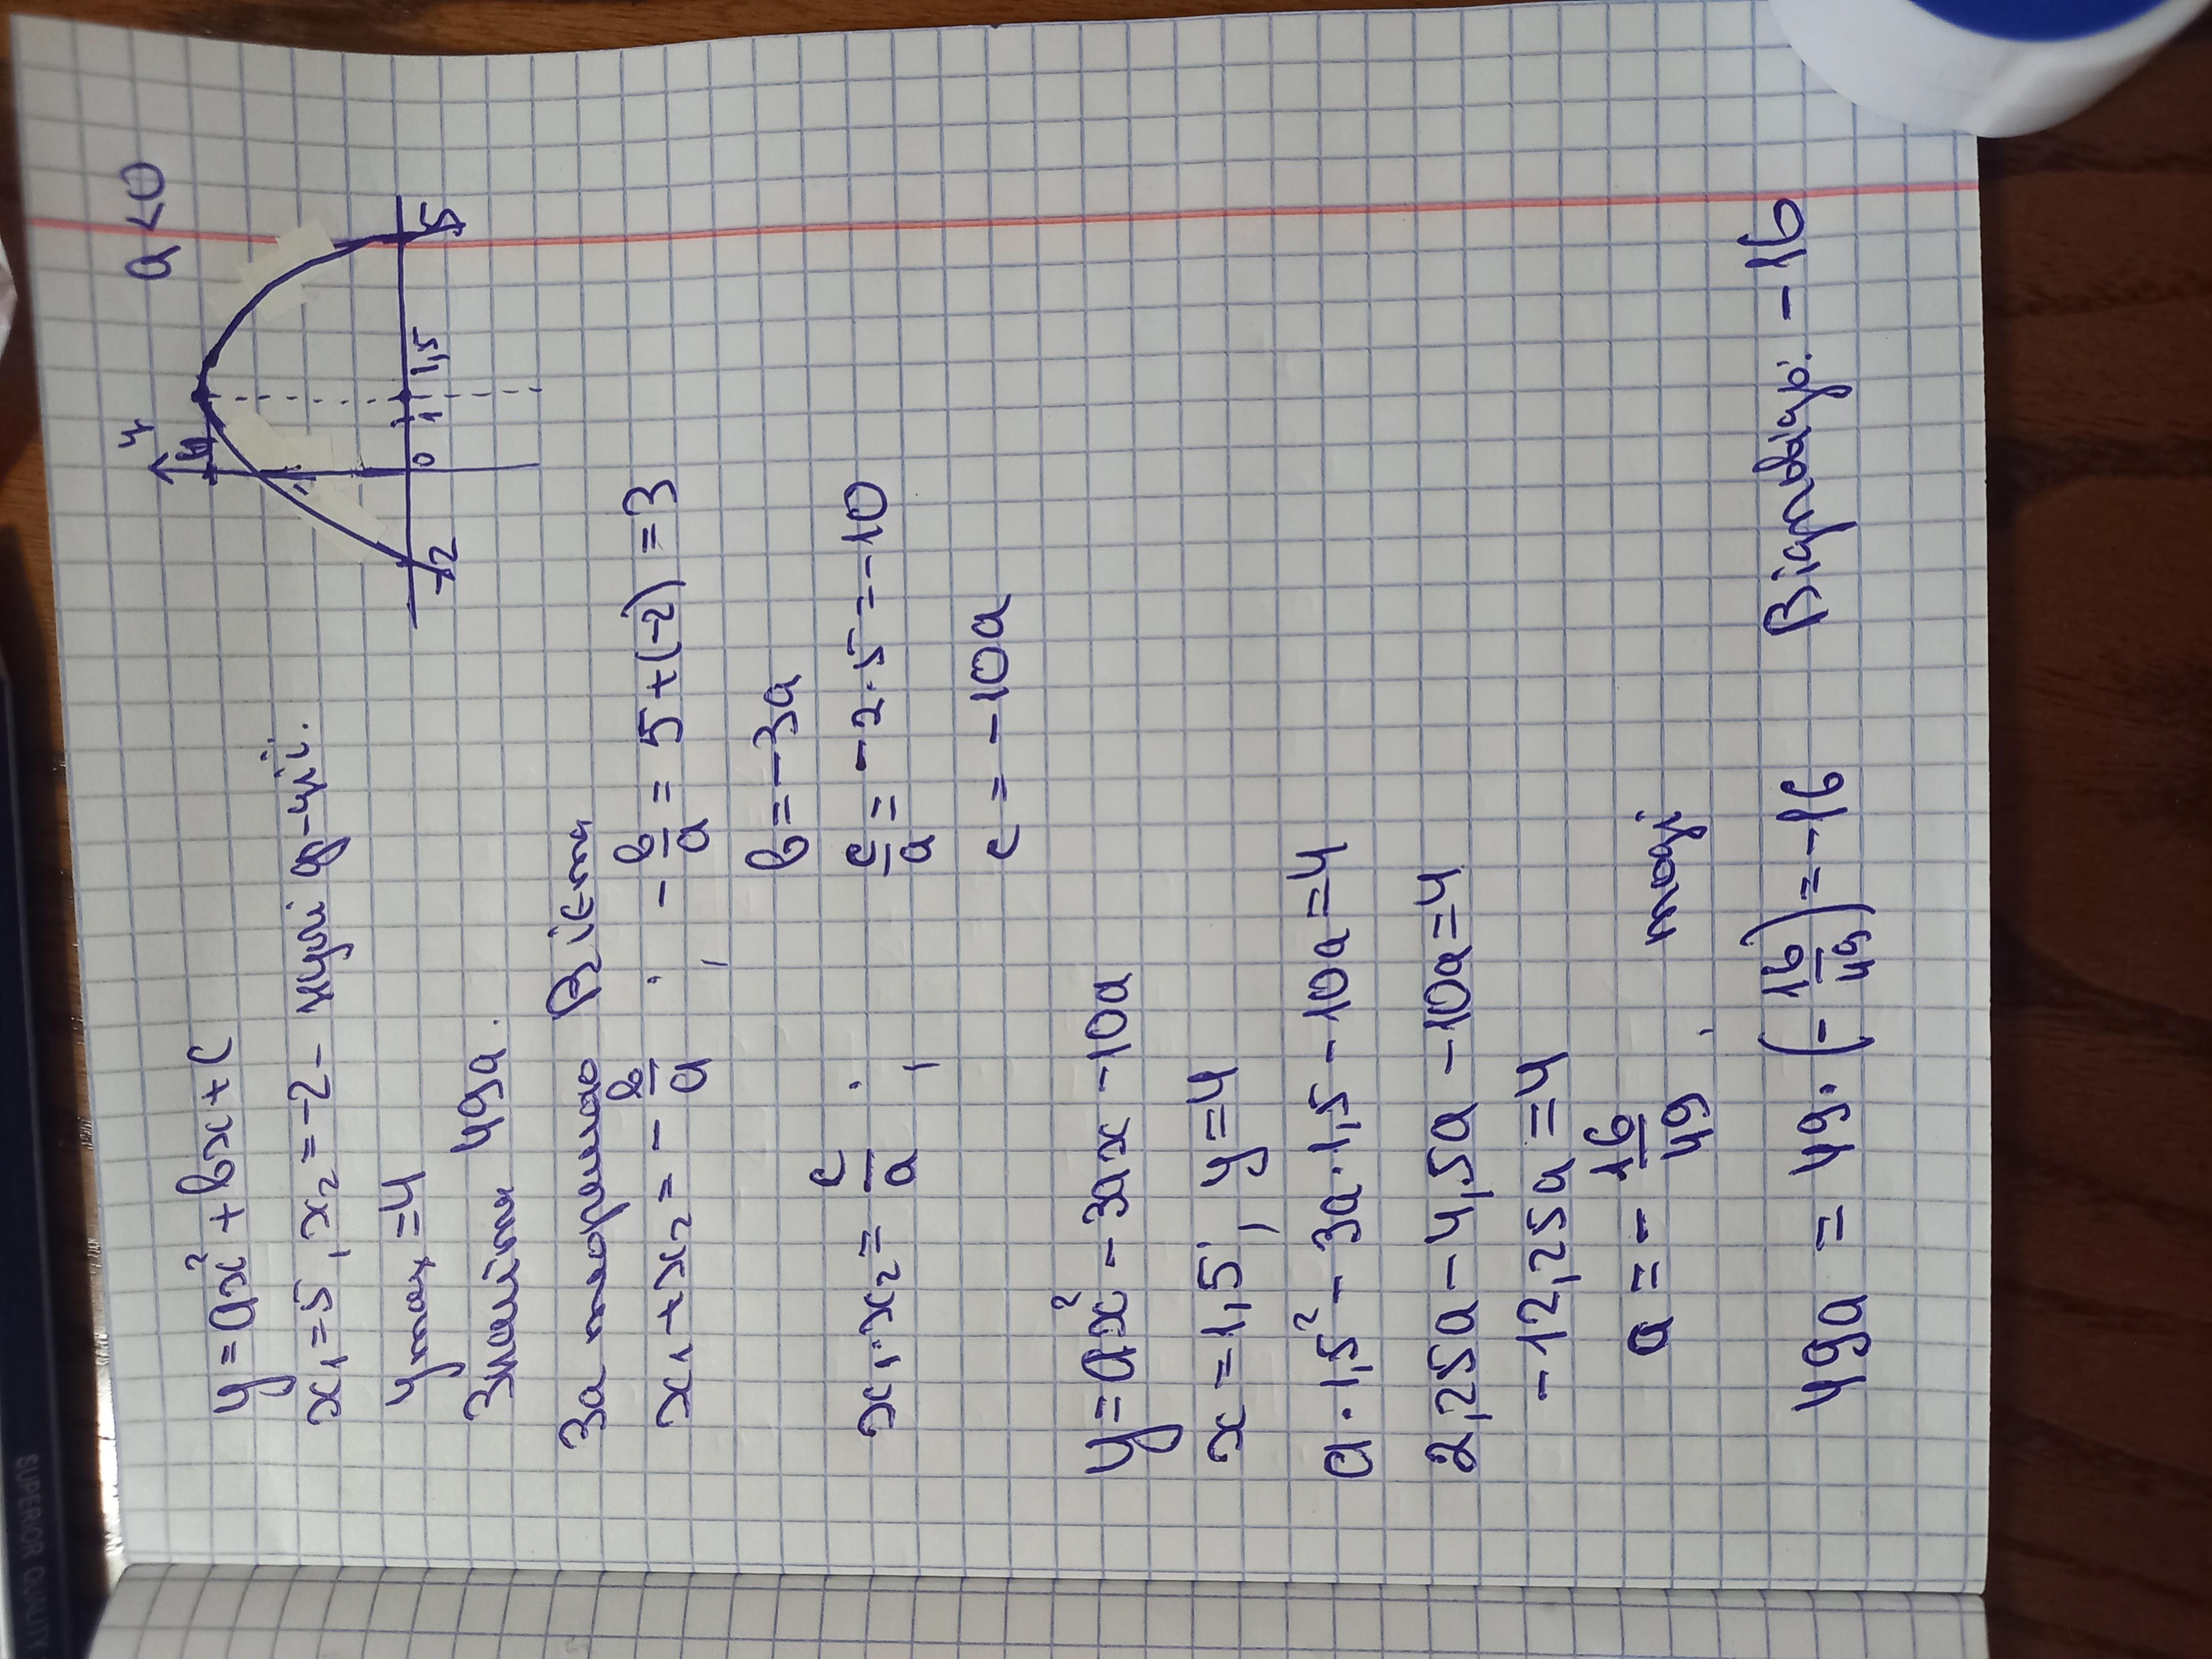 y = ax² + bx + c
x₁ = 5, x₂ = -2 - нулі ф-ції.
ymax = 4
Знайти 49a.
За теоремою Вієта
x₁ + x₂ = - b/a ; - b/a = 5 + (-2) = 3
b = -3a
x₁ · x₂ = c/a ; c/a = -2 · 5 = -10
c = -10a
y = ax² - 3ax - 10a
x = 1,5 ; y = 4
a · 1,5² - 3a · 1,5 - 10a = 4
2,25a - 4,5a - 10a = 4
-12,25a = 4
a = - 16/49 , тоді
49a = 49 · (- 16/49) = -16 Відповідь: -16
a < 0
y
4
1
-2 0 1 1,5 5
SUPERIOR QUALITY